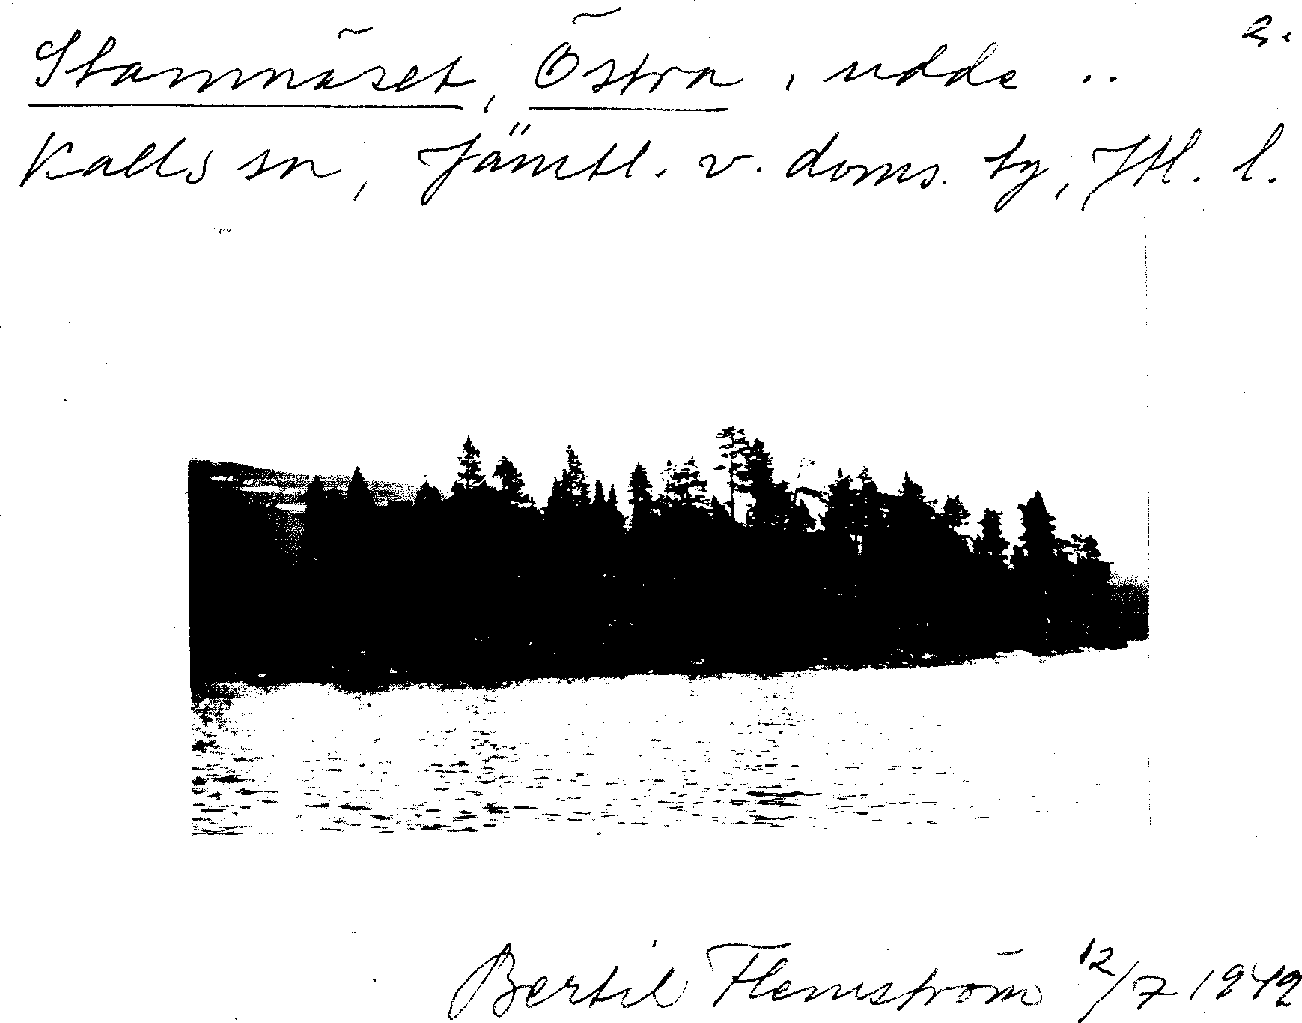 2.
Stamnäset, Östra, udde ..
Kalls sn, Jämtl. v. doms. tg, Jtl. l.
Bertil Flemström 12/7 1949